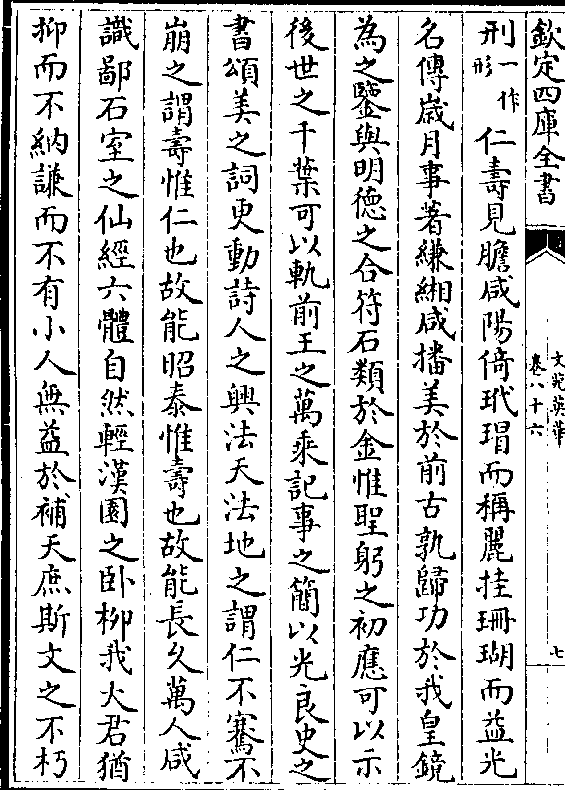 欽定四庫全書
文苑英華
卷八十六
七
刑一作形仁壽見膽咸陽倚玳瑁而稱麗挂珊瑚而益光
名傳嵗月事著縑緗咸播美於前古孰歸功於我皇鏡
為之鑒與明德之合符石類於金惟聖躬之初應可以示
後世之千葉可以軌前王之萬乘記事之簡以光良史之
書頌美之詞更動詩人之興法天法地之謂仁不騫不
崩之謂壽惟仁也故能昭泰惟壽也故能長久萬人咸
識鄙石室之仙經六體自然輕漢園之卧栁我大君猶
抑而不納謙而不有小人無益於補天庶斯文之不朽